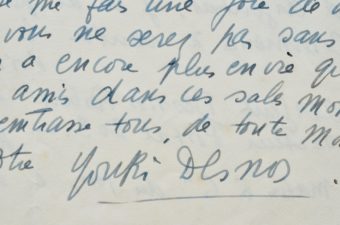 me fais une joie de
vous ne serez pas sans
a encore plus envie qu
amis dans ces sales mo
embrasse tous, de toute mo
Youki Desnos